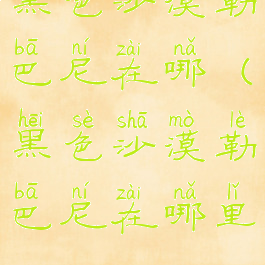 黑色沙漠勒
bā ní zài nǎ
巴尼在哪（
hēi sè shā mò lè
黑色沙漠勒
bā ní zài nǎ lǐ
巴尼在哪里